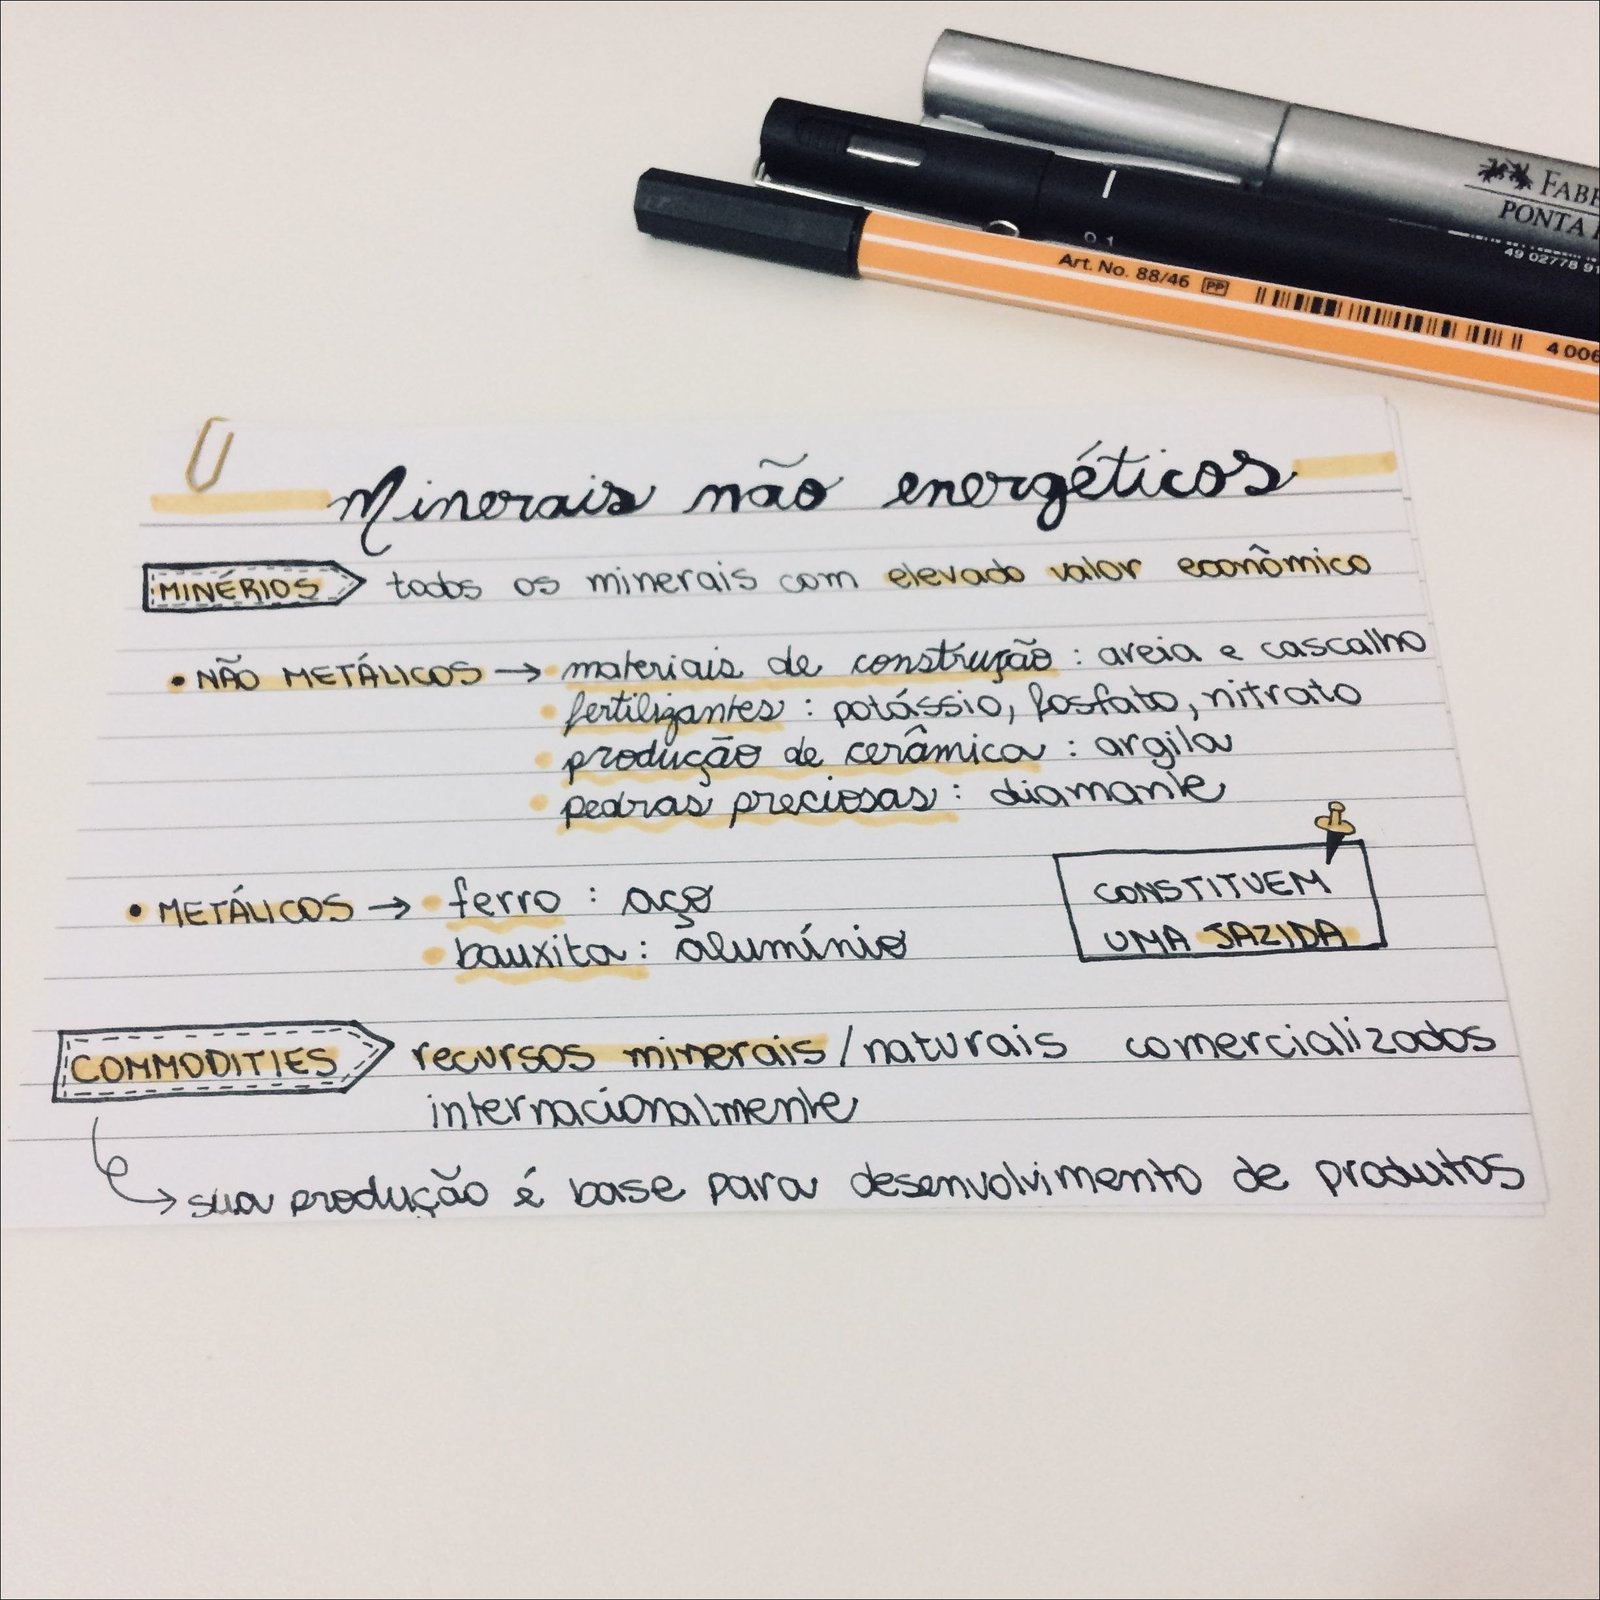 FABE
PONTA
49 02778 91
0.1
Art. No. 88/46 PP
4 006
Minerais não energéticos
MINÉRIOS todos os minerais com elevado valor econômico
• NÃO METÁLICOS → • materiais de construção : areia e cascalho
• fertilizantes : potássio, fosfato, nitrato
• produção de cerâmica : argila
• pedras preciosas : diamante
• METÁLICOS → • ferro : aço
• bauxita : alumínio
CONSTITUEM
UMA JAZIDA
COMMODITIES recursos minerais/naturais comercializados
internacionalmente
→ sua produção é base para desenvolvimento de produtos